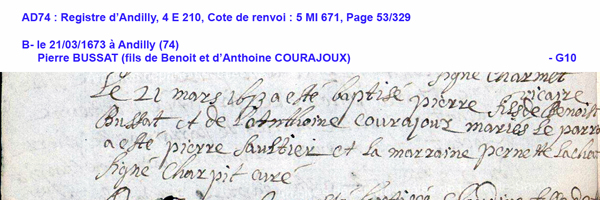 AD74 : Registre d'Andilly, 4 E 210, Cote de renvoi : 5 MI 671, Page 53/329
B- le 21/03/1673 à Andilly (74)
Pierre BUSSAT (fils de Benoit et d'Anthoine COURAJOUX) - G10
signé Charmet
vicaire
Le 21 mars 1673 a esté baptisé pierre fils de Benoist
Bussat et de Anthoine courajoux mariés Le parra
a esté pierre Saultier et la marraine pernette Lachat
signé Charpit curé